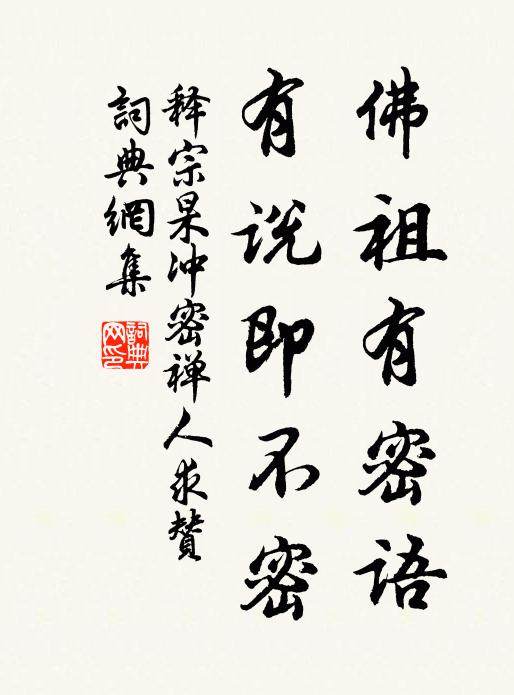 佛祖有密语
有说即不密
释宗杲冲密禅人求赞
詞典網集
詞典网印